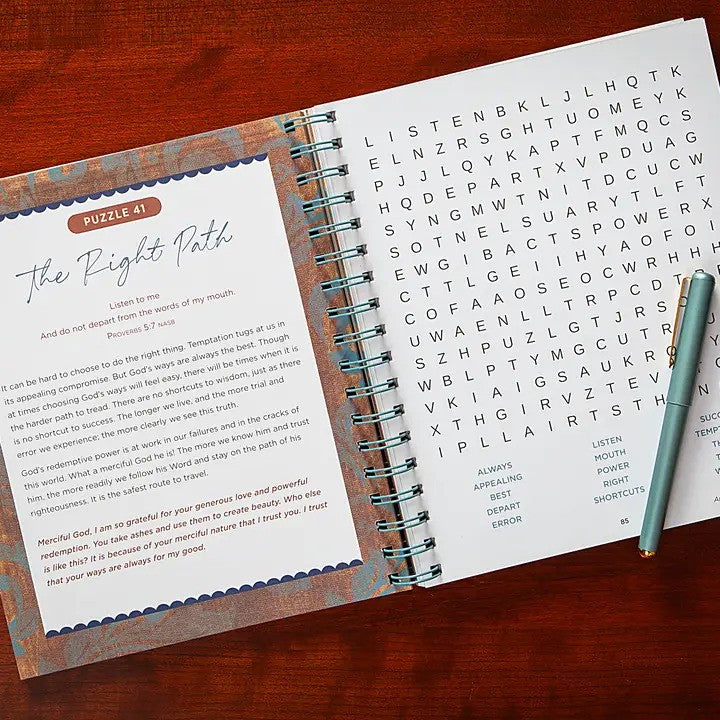 PUZZLE 41
The Right Path
Listen to me
And do not depart from the words of my mouth.
PROVERBS 5:7 NASB
It can be hard to choose to do the right thing. Temptation tugs at us in
its appealing compromise. But God's ways are always the best. Though
at times choosing God's ways will feel easy, there will be times when it is
the harder path to tread. There are no shortcuts to wisdom, just as there
is no shortcut to success. The longer we live, and the more trial and
error we experience; the more clearly we see this truth.
God's redemptive power is at work in our failures and in the cracks of
this world. What a merciful God he is! The more we know him and trust
him, the more readily we follow his Word and stay on the path of his
righteousness. It is the safest route to travel.
Merciful God, I am so grateful for your generous love and powerful
redemption. You take ashes and use them to create beauty. Who else
is like this? It is because of your merciful nature that I trust you. I trust
that your ways are always for my good.
L I S T E N B K L J L H Q T K
E L N Z R S G H T U O M E Y K
P J J L Q Y K A P T F M Q C S
H Q D E P A R T X V P D U A G
S Y N G M W T N I T D C U C W
S O T N E L S U A R Y T L F T
E W G I B A C T S P O W E R X
C T T L G E I I H Y A O F O I
C O F A A O S E O C W R H H H
U W A E N L L T R P C D T
S Z H P U Z L G T J R S
W B L P T Y M G C U T R
V K I A I G S A U K R
X T H G I R V Z T E V
I P L L A I R T S T H
ALWAYS
APPEALING
BEST
DEPART
ERROR
LISTEN
MOUTH
POWER
RIGHT
SHORTCUTS
85